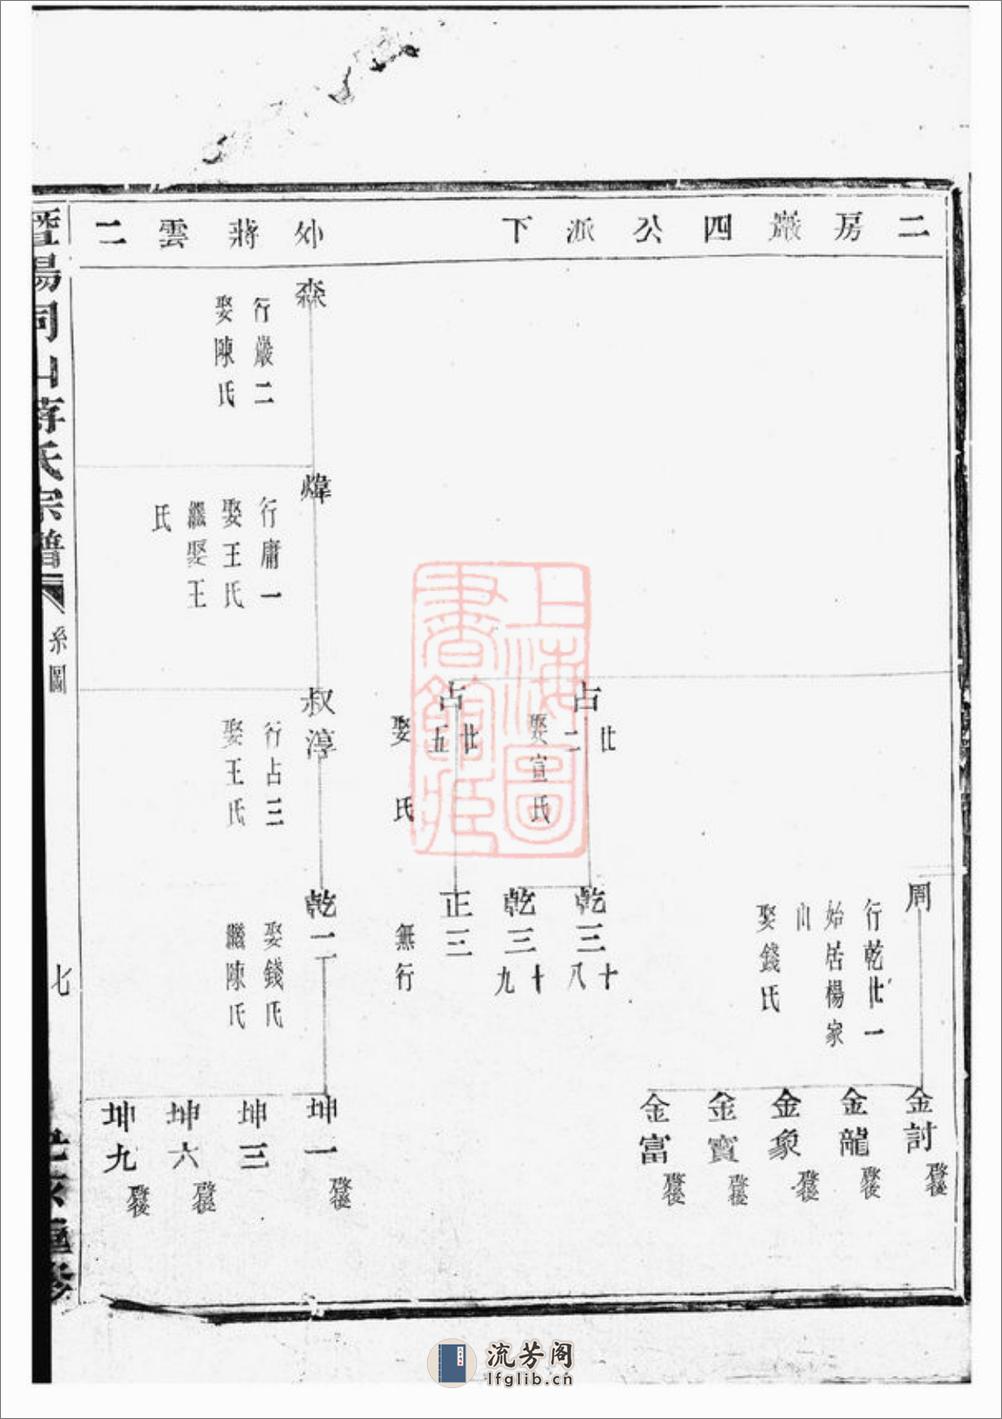 二房巖四公派下
外蔣雲二
周
行乾廿一
始居楊家
山
娶錢氏
金討
啓後
金龍
啓後
金象
啓後
金寶
啓後
金富
啓後
占廿二
娶宣氏
乾三十八
乾三十九
占廿五
娶 氏
正三
無行
森
行巖二
娶陳氏
煒
行庸一
娶王氏
繼娶王
氏
叔淳
行占三
娶王氏
乾一
娶錢氏
繼陳氏
坤一
啓後
坤三
坤六
啓後
坤九
啓後
暨陽同山蔣氏宗譜
系圖
七
上海圖
書館藏
流芳阁
lfglib.cn